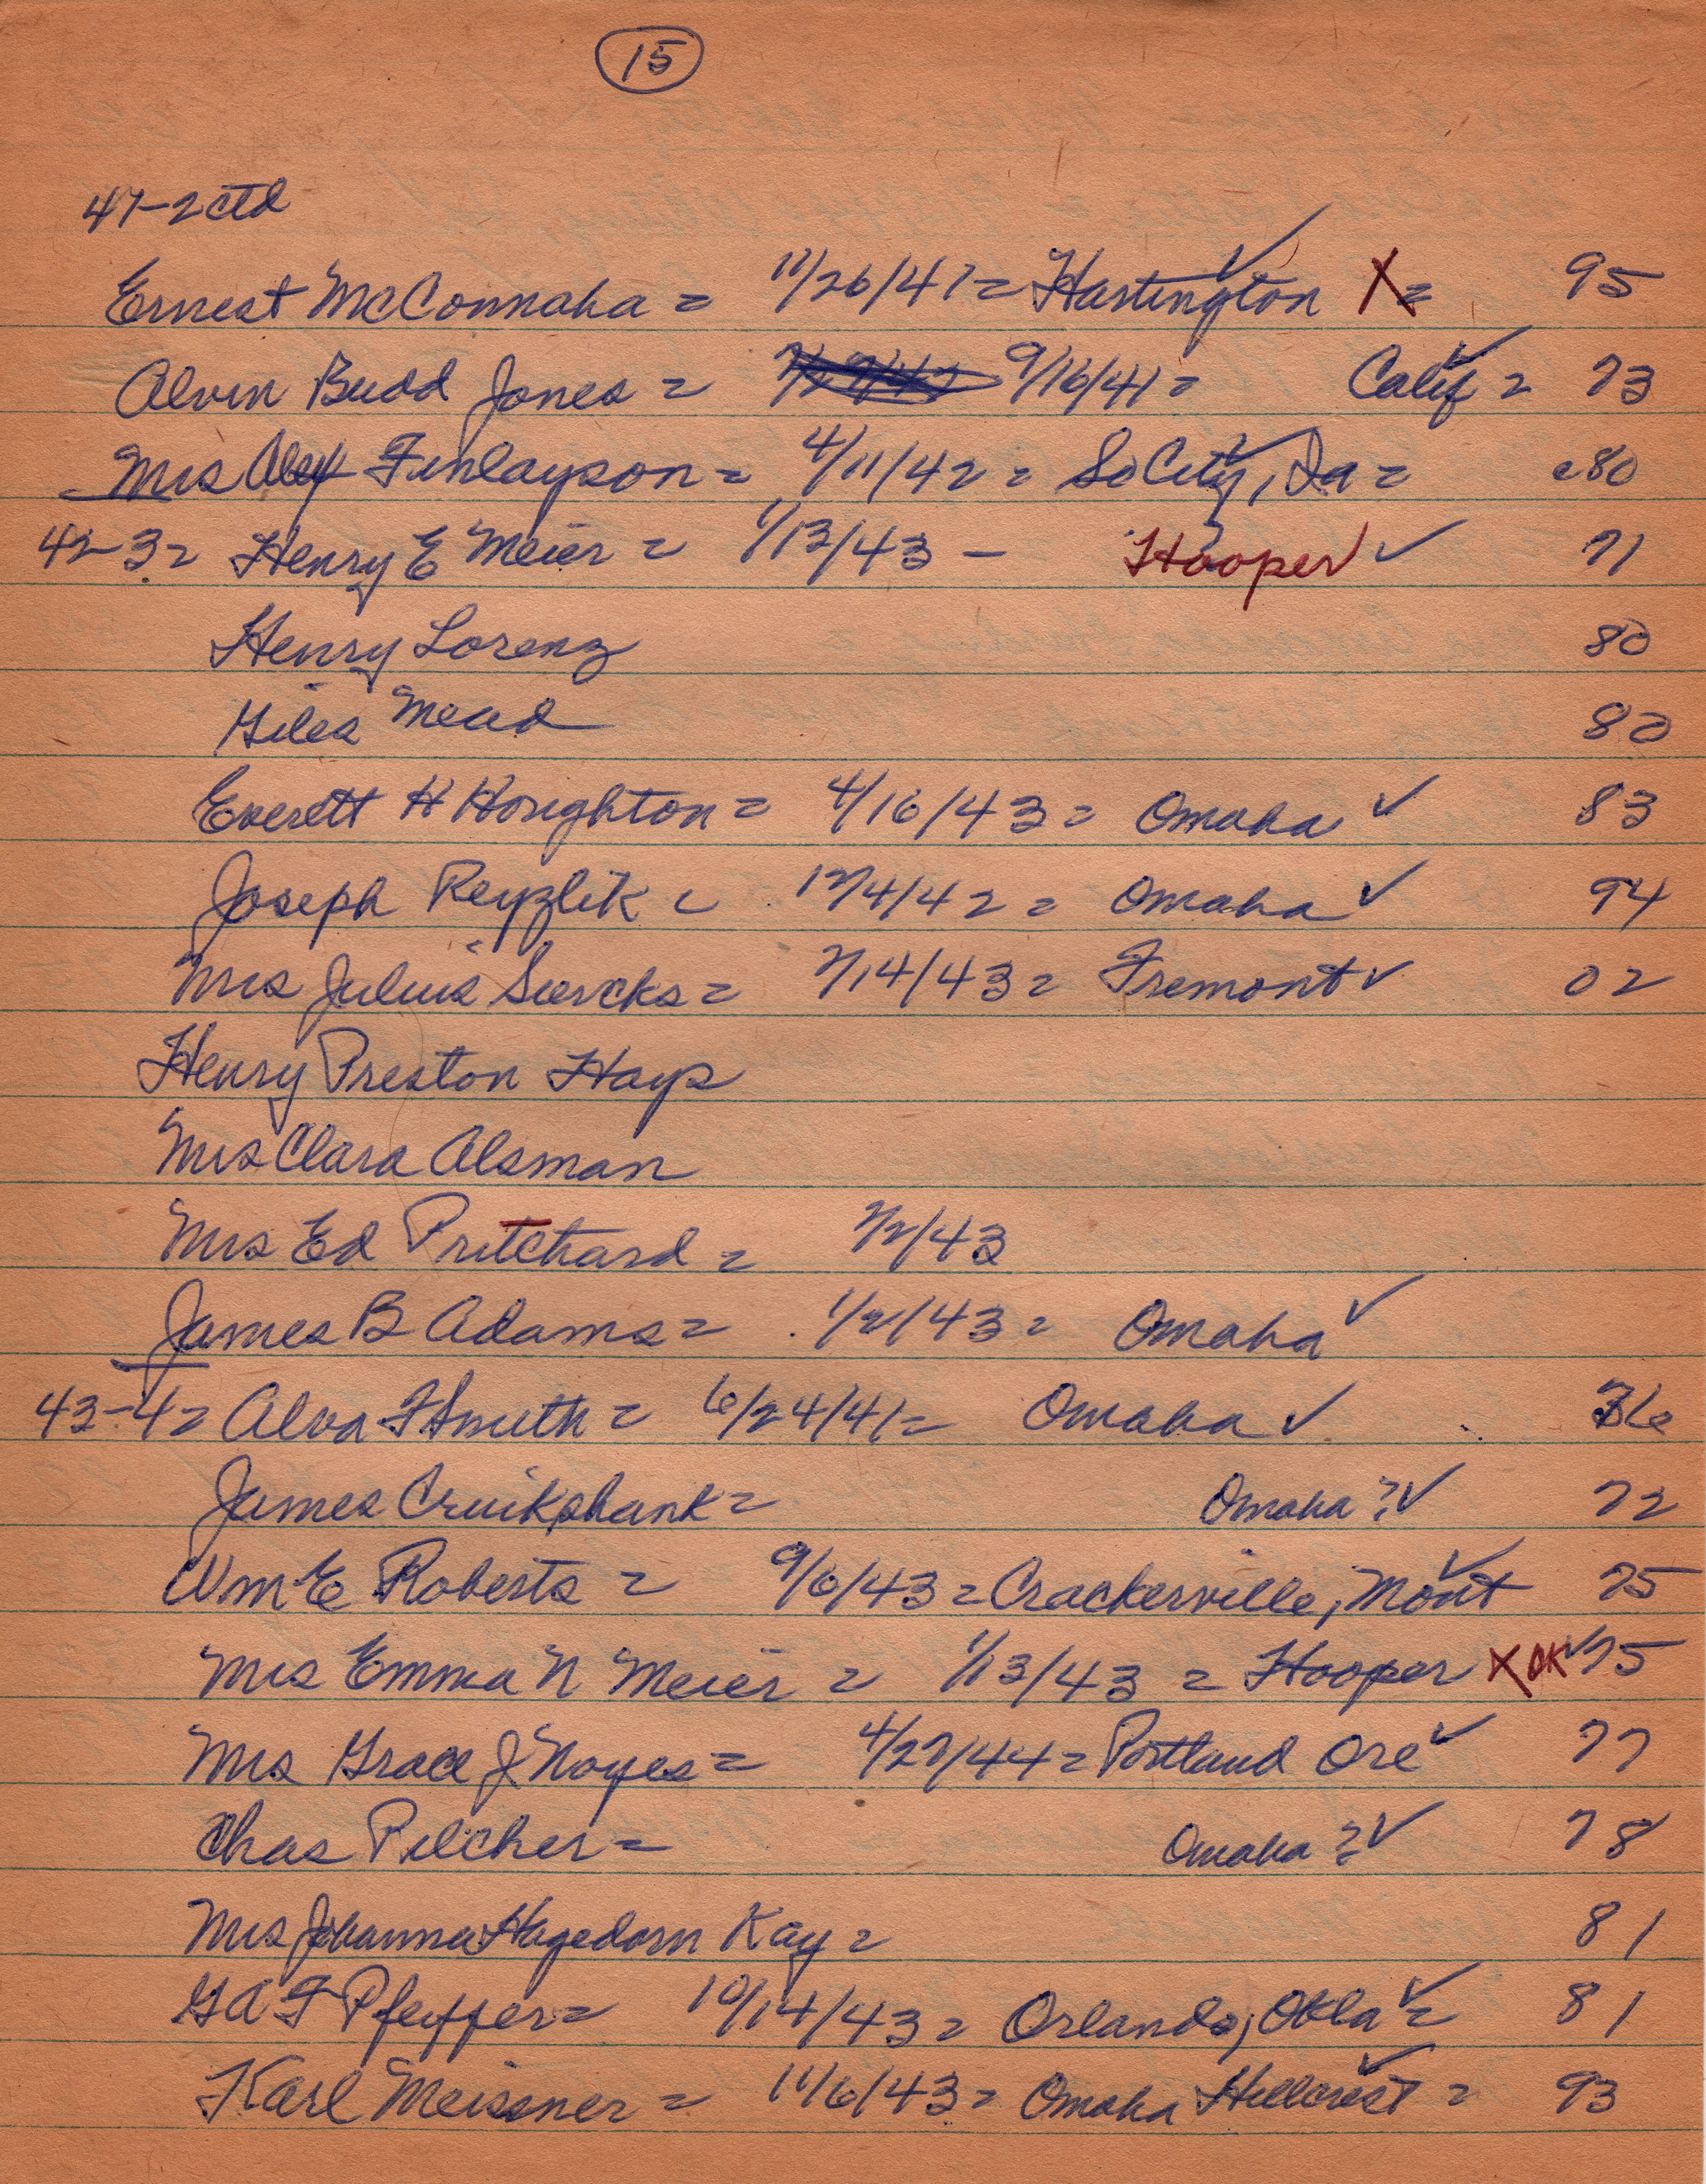 15
41-2 ctd
Ernest McConnaha = 11/26/41 = Hartington ✓ X = 95
Alvin Budd Jones = 9/16/41 = Calif ✓ = 73
Mrs Alex Finlayson = 4/11/42 = So City, Ia ✓ = 80
42-3 = Henry E Meier = 1/13/43 - Hooper ✓ 71
Henry Lorenz 80
Giles Mead 80
Everett H Houghton = 4/16/43 = Omaha ✓ 83
Joseph Reyzlik = 12/4/42 = Omaha ✓ 94
Mrs Julius Siercks = 2/14/43 = Fremont ✓ 02
Henry Preston Hays
Mrs Clara Alsman
Mrs Ed Pritchard = 2/2/43
James B Adams = 1/2/43 = Omaha ✓
43-4 = Alva F Smith = 6/24/41 = Omaha ✓
James Cruikshank = Omaha ? ✓ 72
Wm E Roberts = 9/6/43 = Crackerville, Mont ✓ 75
Mrs Emma N Meier = 1/13/43 = Hooper X OK ✓ 75
Mrs Grace J Noyes = 4/27/44 = Portland Ore ✓ 77
Chas Pilcher = Omaha ? ✓ 78
Mrs Johanna Hagedorn Kay = 81
G A F Pfeiffer = 10/14/43 = Orlando, Okla ✓ = 81
Karl Meissner = 11/6/43 = Omaha Hillcrest ✓ = 93